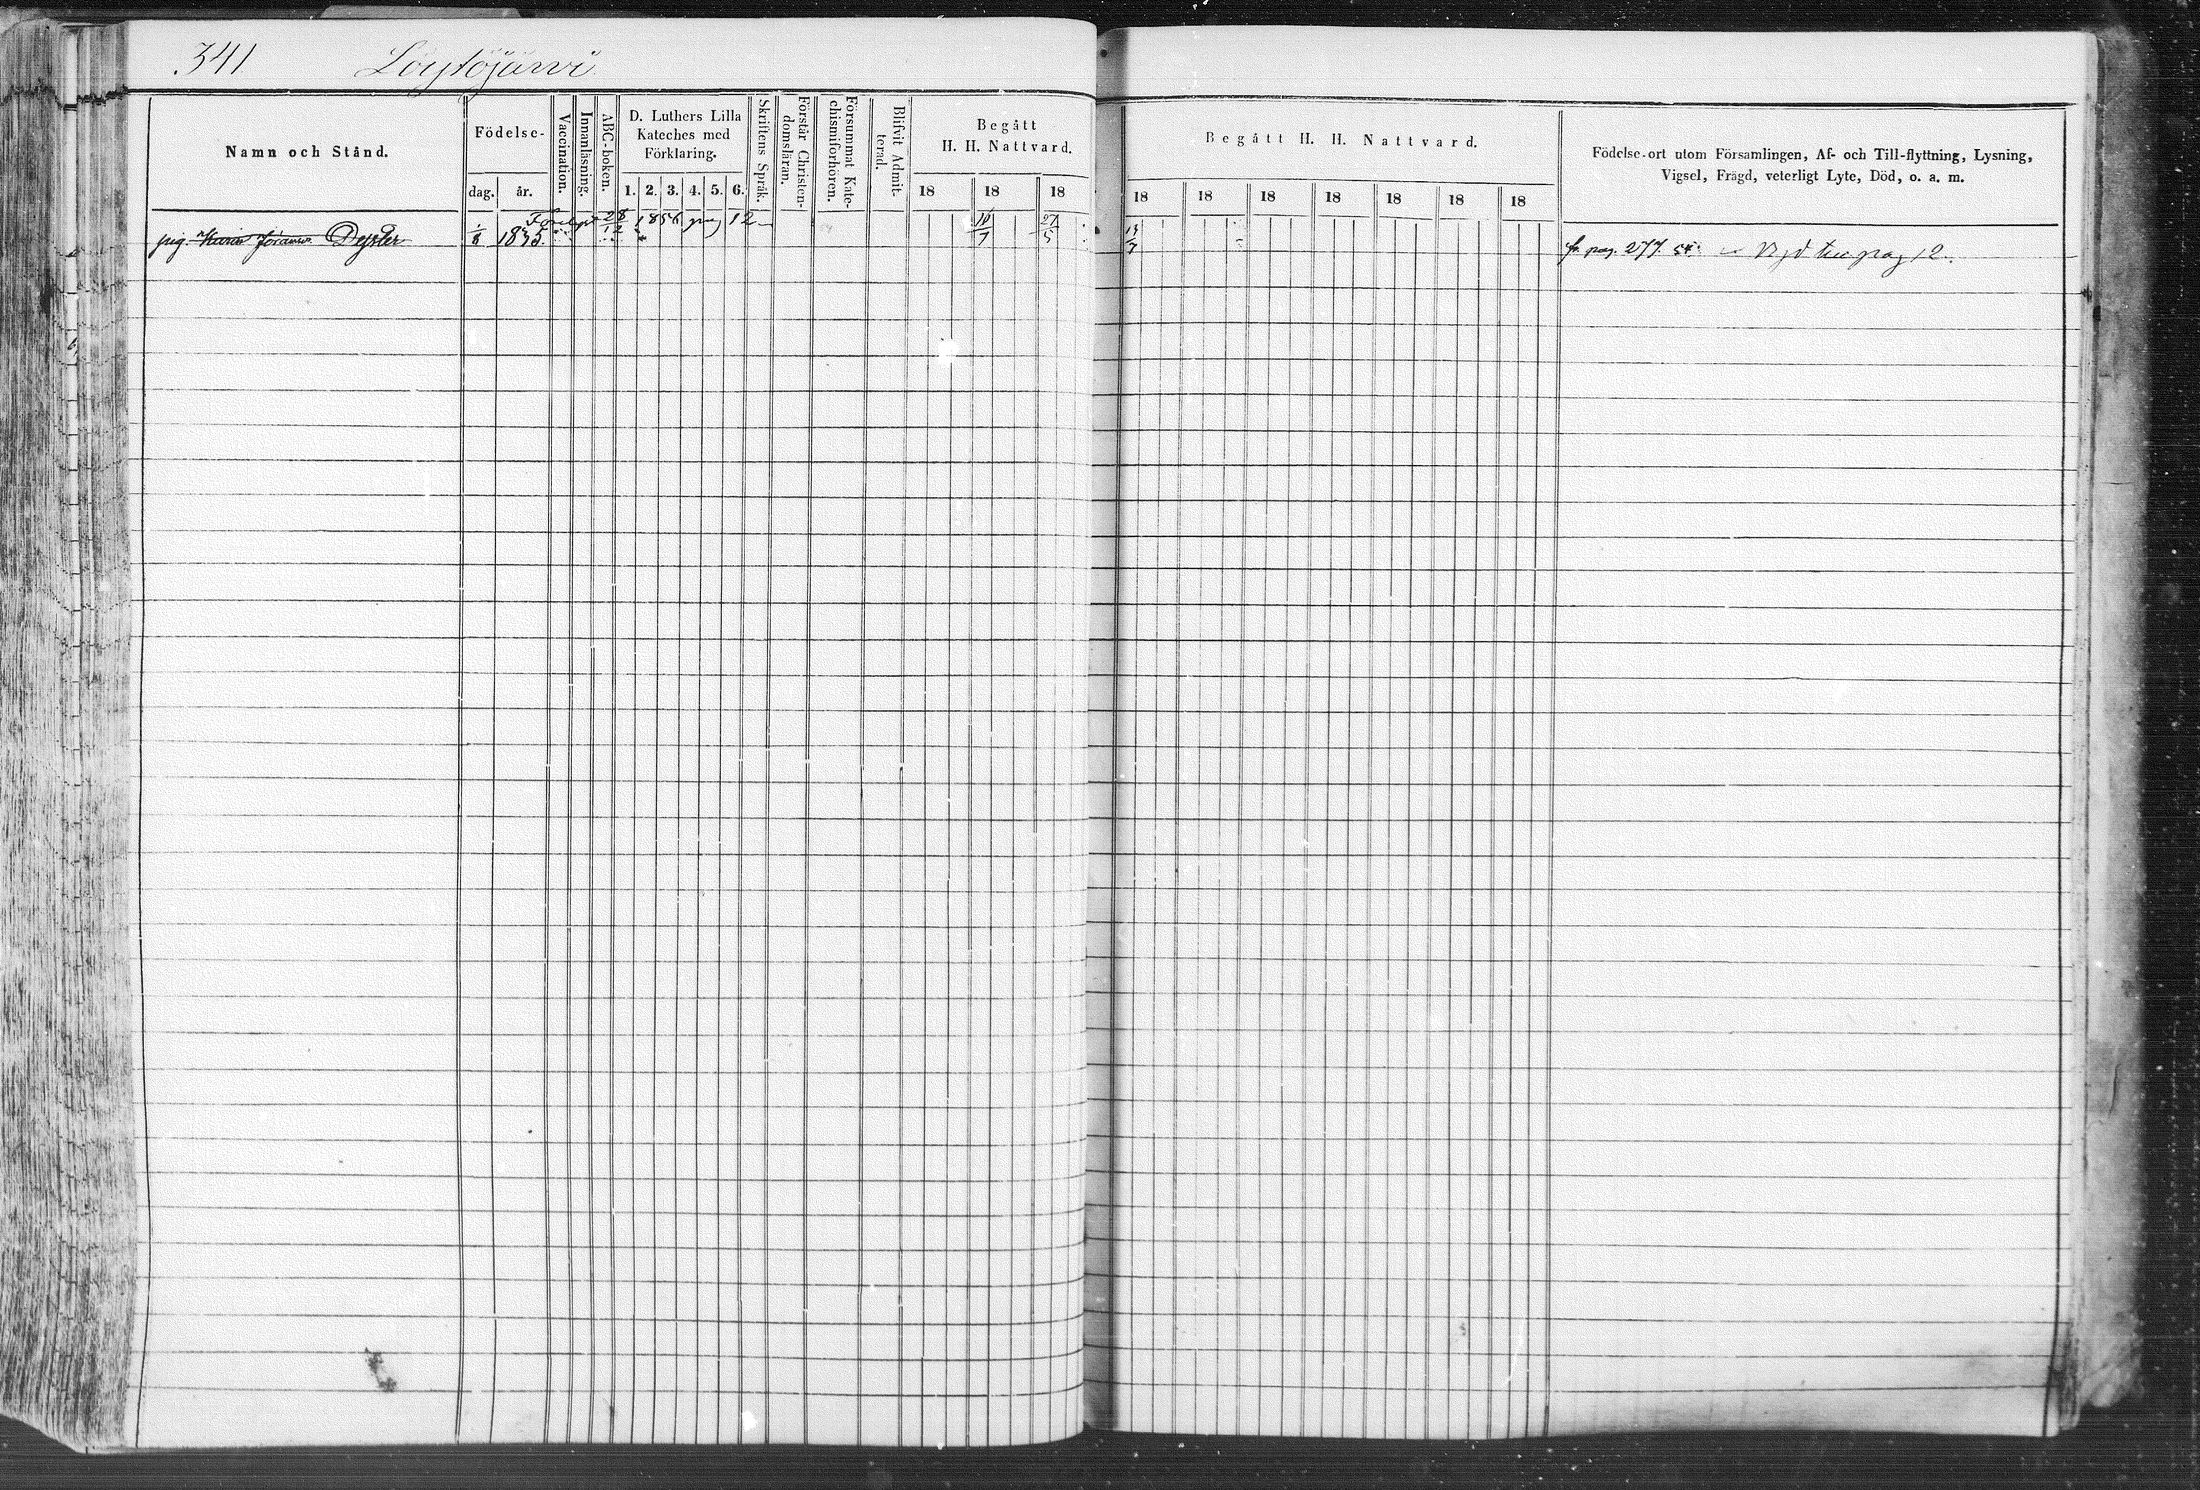 341 Löytöjärvi
Namn och Stånd.
Födelse-
dag. år.
Vaccination.
Innanläsning.
ABC-boken.
D. Luthers Lilla
Kateches med
Förklaring.
1. 2. 3. 4. 5. 6.
Skriftens Språk.
Förstår Christen-
domsläran.
Försummat Kate-
chismiförhören.
Blifvit Admit-
terad.
Begått
H. H. Nattvard.
18 18 18
Begått H. H. Nattvard.
18 18 18 18 18 18 18
Födelse-ort utom Församlingen, Af- och Till-flyttning, Lysning,
Vigsel, Frägd, veterligt Lyte, Död, o. a. m.
28/12 1856 pag 12
pig. Karin Dejster 1/8 1835. 10/7 27/5 19/7 fr. pag. 277. 54. pag 12.